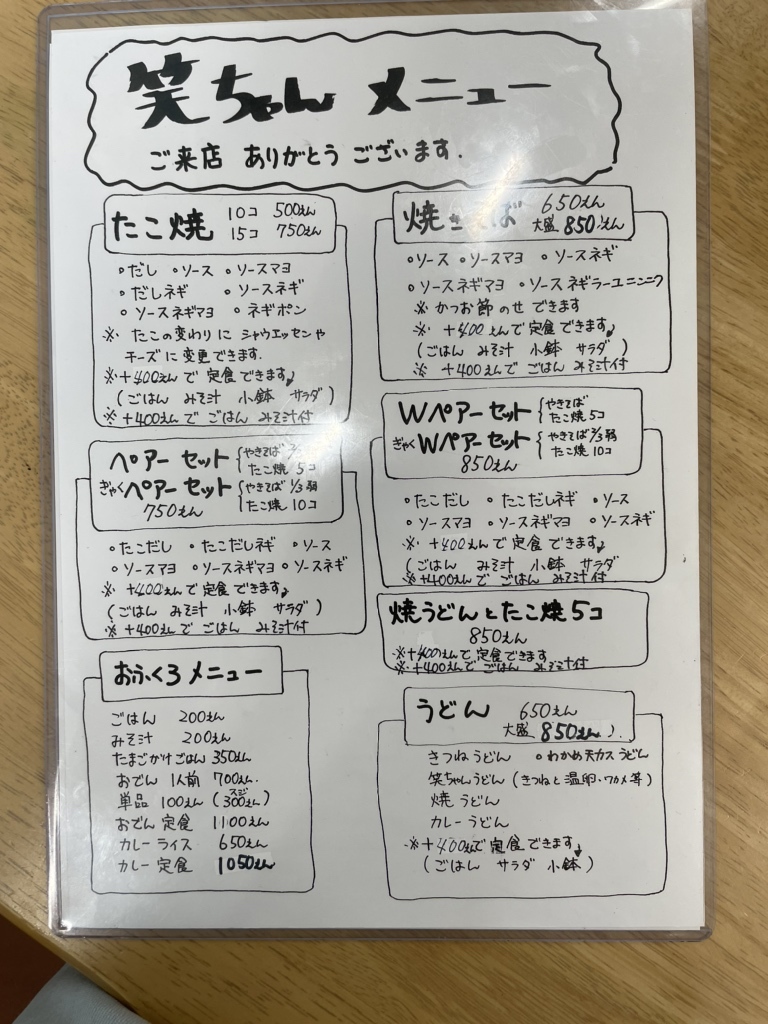 笑ちゃん メニュー
ご来店 ありがとう ございます.
たこ焼 10コ 500えん
15コ 750えん
◦だし ◦ソース ◦ソースマヨ
◦だしネギ ◦ソースネギ
◦ソースネギマヨ ◦ネギポン
※ たこの変わりに シャウエッセンや
チーズに変更できます.
※+400えんで 定食できます♪
(ごはん みそ汁 小鉢 サラダ)
※+400えんで ごはん みそ汁付
ペアーセット {やきそば
たこ焼 5コ
ぎゃくペアーセット {やきそば 1/3弱
たこ焼 10コ
750えん
◦たこだし ◦たこだしネギ ◦ソース
◦ソースマヨ ◦ソースネギマヨ ◦ソースネギ
※+400えんで 定食できます♪
(ごはん みそ汁 小鉢 サラダ)
※+400えんで ごはん みそ汁付
おふくろメニュー
ごはん 200えん
みそ汁 200えん
たまごかけごはん 350えん
おでん 1人前 700えん.
単品 100えん (スジ 300えん)
おでん 定食 1100えん
カレーライス 650えん
カレー 定食 1050えん
焼きそば 650えん
大盛 850えん
◦ソース ◦ソースマヨ ◦ソースネギ
◦ソースネギマヨ ◦ソースネギラーユニンニク
※ かつお節のせ できます
※ +400えんで定食できます♪
(ごはん みそ汁 小鉢 サラダ)
※ +400えんで ごはん みそ汁付
Wペアーセット {やきそば
たこ焼 5コ
ぎゃくWペアーセット {やきそば 2/3弱
たこ焼 10コ
850えん
◦たこだし ◦たこだしネギ ◦ソース
◦ソースマヨ ◦ソースネギマヨ ◦ソースネギ
※ +400えんで定食できます♪
(ごはん みそ汁 小鉢 サラダ
※+400えんで ごはん みそ汁付
焼うどんとたこ焼5コ
850えん
※+400えんで定食できます
※+400えんで ごはん みそ汁付
うどん 650えん
大盛 850えん
きつねうどん ◦わかめ天カスうどん
笑ちゃんうどん (きつねと温卵・ワカメ等)
焼うどん
カレーうどん
※+400えんで 定食できます♪
(ごはん サラダ 小鉢)